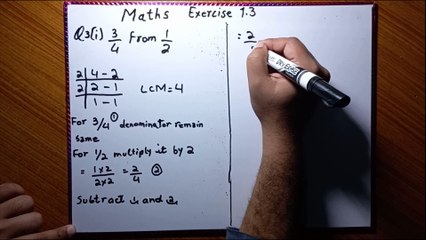 Maths Exercise 1.3
Q3(i) 3/4 from 1/2
2 | 4 - 2
2 | 2 - 1
1 - 1
LCM = 4
For 3/4 ① denominator remain
same
For 1/2 multiply it by 2
= 1×2/2×2 = 2/4 ②
Subtract 1 and 2
= 2/